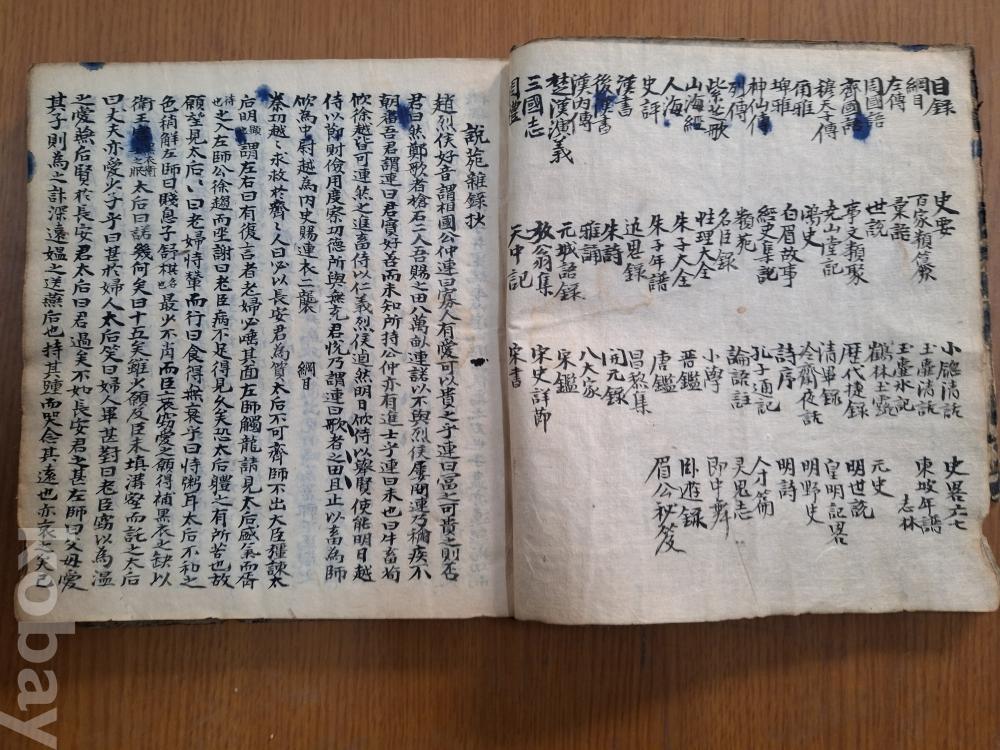 目録
綱目
左傳
周國語
齊國語
穆天子傳
爾雅
埤雅
神仙傳
列傳
紫芝歌
山海經
人海
史評
漢書
後漢書
漢内傳
楚漢演義
三國志
周禮
史要
百家類纂
世説
事文類聚
堯山堂記
鴻史
白眉故事
經史集記
説苑
名臣録
性理大全
朱子大全
朱子年譜
近思録
朱詩
雅誦
元城語録
放翁集
天中記
小窓清話
玉壺清話
玉壺氷記
鶴林玉露
歴代捷録
清畢録
冷齋夜話
詩序
孔子通記
論語註
小學
晋鑑
唐鑑
昌黎集
開元録
八大家
宋鑑
宋史詳節
宋書
史畧六七
東坡年譜
志林
元史
明世説
皇明記畧
明野史
明詩
人才篇
灵鬼志
即中舞
卧遊録
眉公秘笈
説苑雜録抄
趙烈侯好音謂相國公仲連曰寡人有愛可以貴之乎連曰富之可貴之則否
君曰然鄭歌者槍石二人吾賜之田八萬畝連諾以不與烈侯屢問連乃稱疾不
朝番吾君謂連曰君實好善而未知所持公仲亦有進士乎連曰未也曰牛畜荀
欣徐越皆可連然之進畜侍以仁義烈侯逌然明日欣侍以擧賢使能明日越
侍以節財儉用度察功德所與無充君悦乃謂連曰歌者之田且止以畜為師
欣為中尉越為内史賜連衣二襲 綱目
秦攻趙々求救於齊々人曰必以長安君為質太后不可齊師不出大臣強諫太
后明謂左右曰有復言者老婦必唾其面左師觸龍請見太后盛氣而胥
之入左師公徐趨而坐謝曰老臣病不足得見久矣恐太后體之有所苦也故
願望見太后々曰老婦恃輦而行曰食得無衰乎曰恃粥耳太后不和之
色稍解左師曰賤息子舒祺最少不肖而臣衰竊愛之願得補黒衣之缺以
衛王宮太后曰諾幾何矣曰十五矣雖少願及臣未填溝壑而託之太后
曰丈夫亦愛少子乎曰甚於婦人太后笑曰婦人異甚對曰老臣竊以為媼
之愛燕后賢於長安君太后曰君過矣不如長安君之甚左師曰父母愛
其子則為之計深遠媼之送燕后也持其踵而哭念其遠也亦哀之矣已
kobay